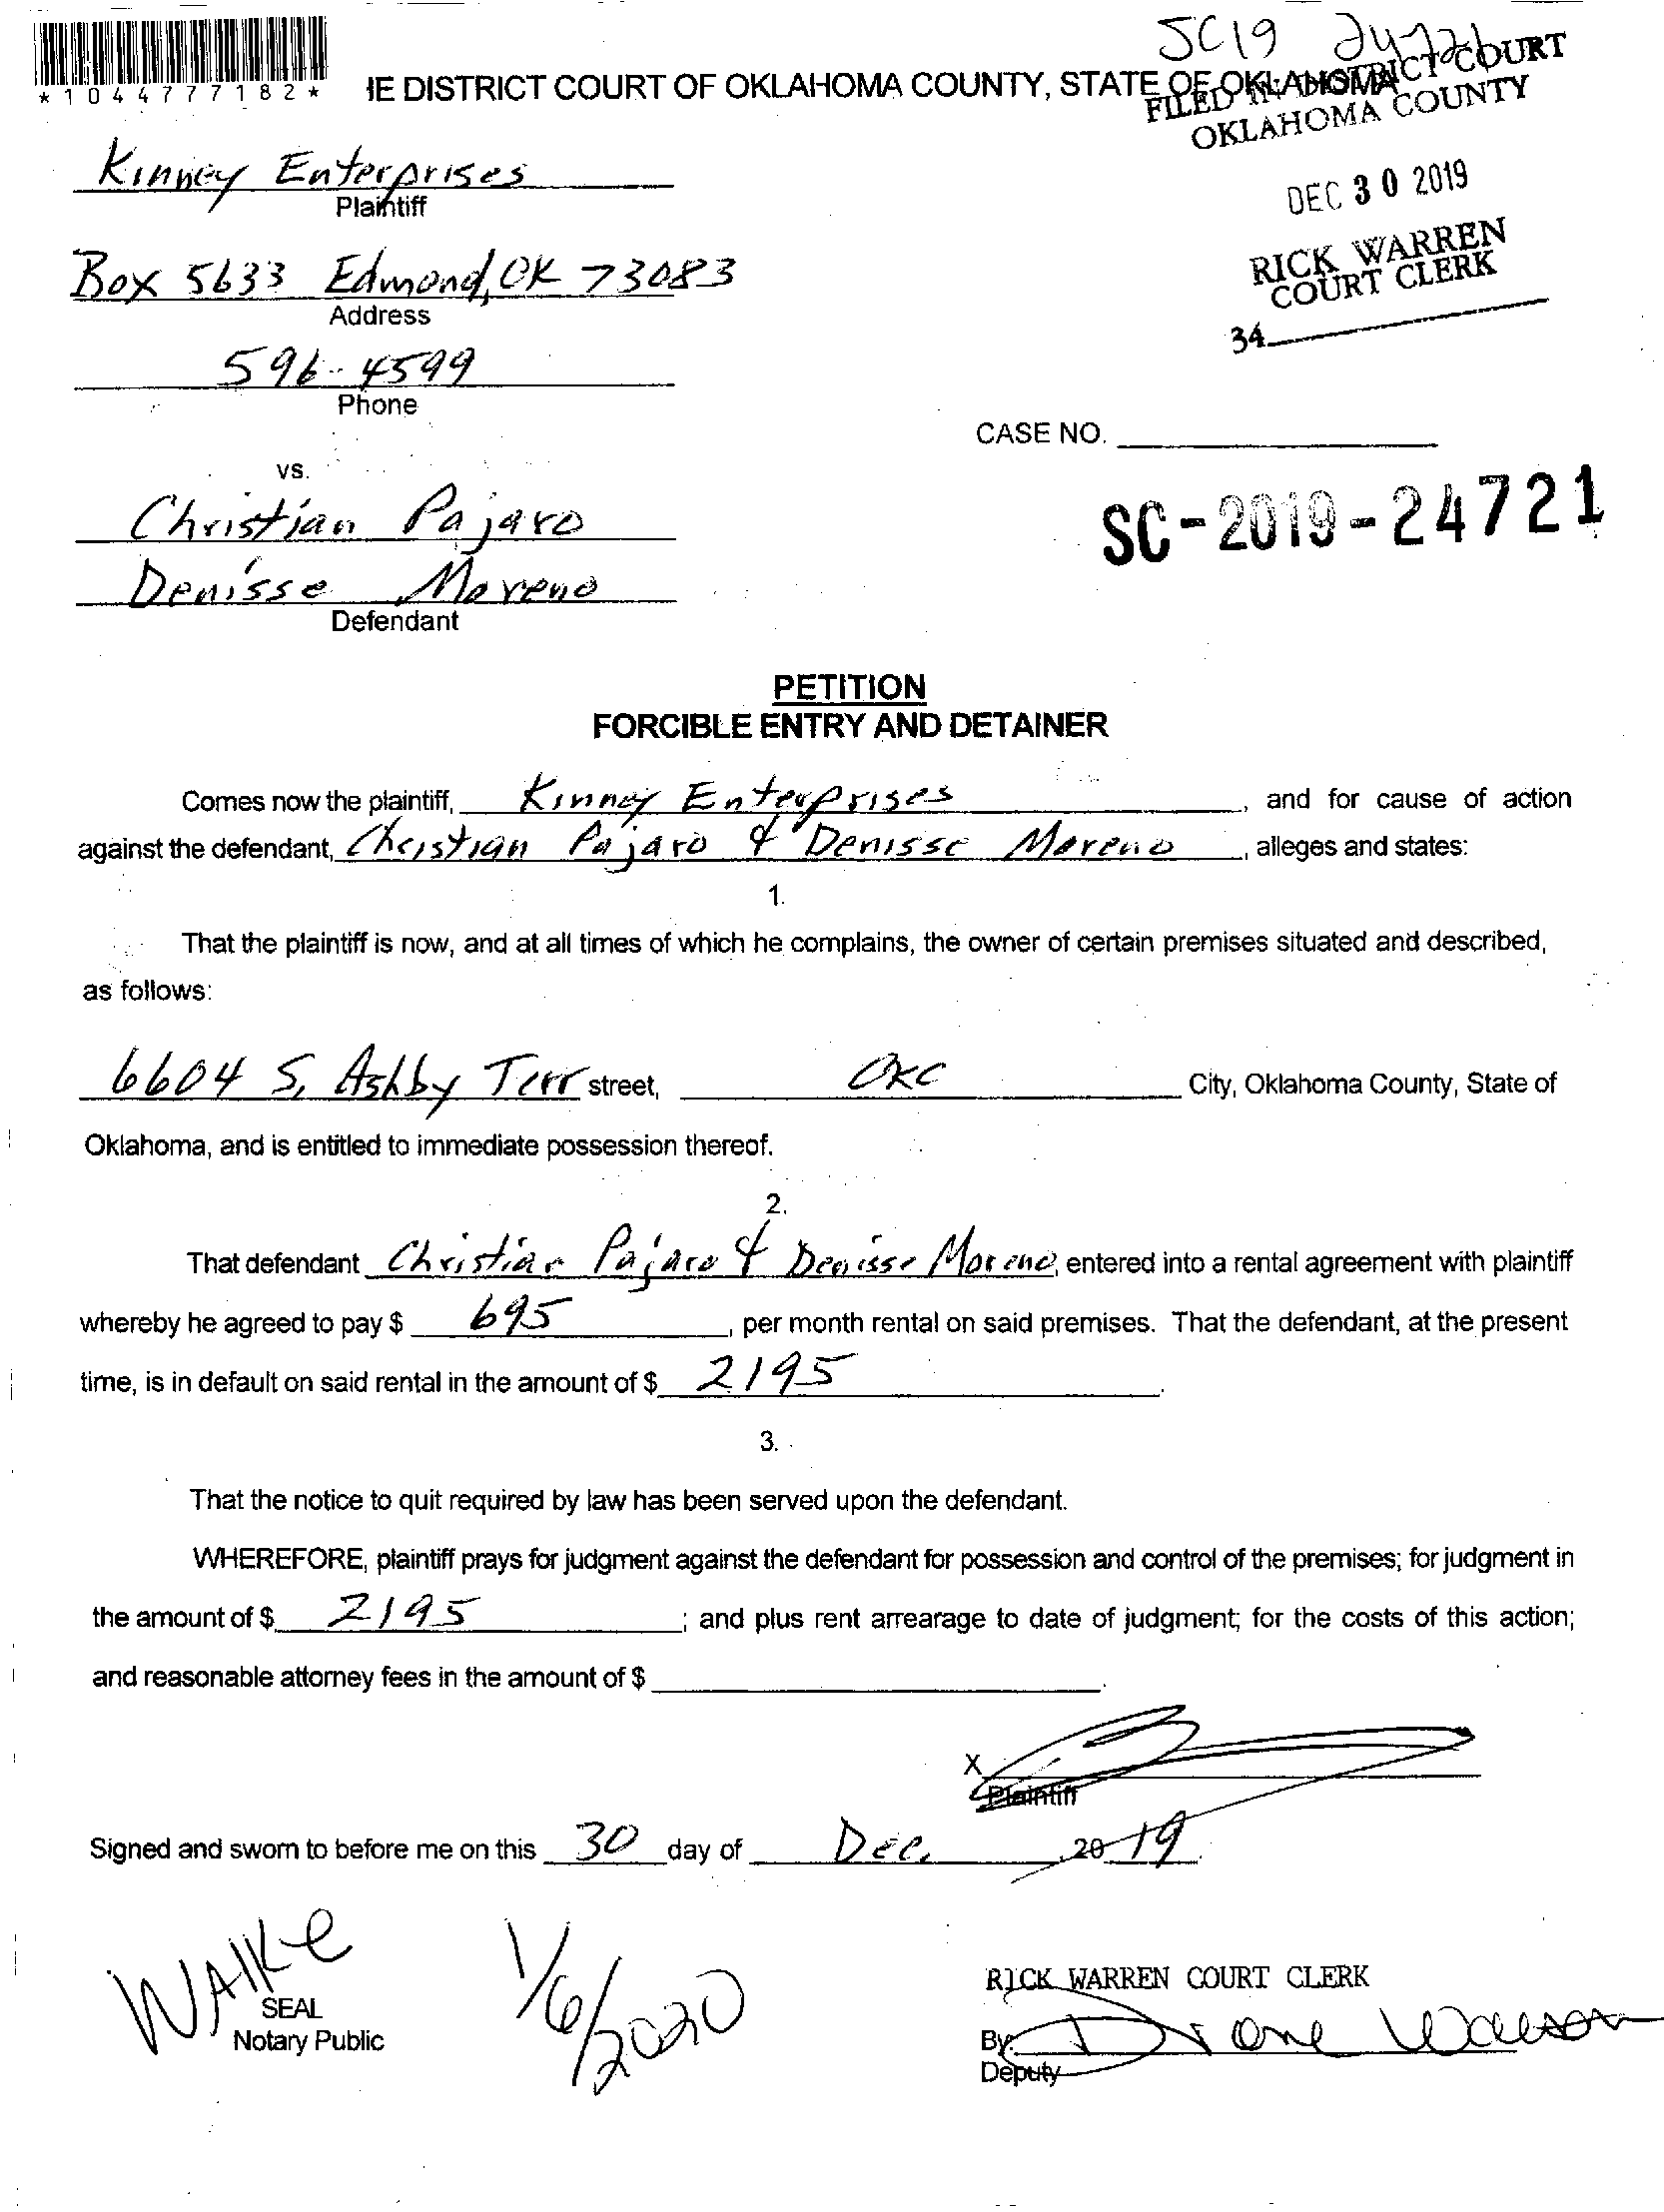 SC19 24721
*1044777182*
IE DISTRICT COURT OF OKLAHOMA COUNTY, STATE OF OKLAHOMA
FILED IN DISTRICT COURT
OKLAHOMA COUNTY
DEC 30 2019
RICK WARREN
COURT CLERK
34
Kinney Enterprises
Plaintiff
Box 5633 Edmond, OK 73083
Address
596-4599
Phone
CASE NO.
SC-2019-24721
vs.
Christian Pajaro
Denisse Moreno
Defendant
PETITION
FORCIBLE ENTRY AND DETAINER
Comes now the plaintiff, Kinney Enterprises, and for cause of action
against the defendant, Christian Pajaro & Denisse Moreno, alleges and states:
1.
That the plaintiff is now, and at all times of which he complains, the owner of certain premises situated and described,
as follows:
6604 S. Ashby Terr street, OKC City, Oklahoma County, State of
Oklahoma, and is entitled to immediate possession thereof.
2.
That defendant Christian Pajaro & Denisse Moreno, entered into a rental agreement with plaintiff
whereby he agreed to pay $ 695, per month rental on said premises. That the defendant, at the present
time, is in default on said rental in the amount of $ 2195.
3.
That the notice to quit required by law has been served upon the defendant.
WHEREFORE, plaintiff prays for judgment against the defendant for possession and control of the premises; for judgment in
the amount of $ 2195; and plus rent arrearage to date of judgment; for the costs of this action;
and reasonable attorney fees in the amount of $ .
X
Plaintiff
Signed and sworn to before me on this 30 day of Dec, 2019.
WAlKe 1/6/2020
SEAL
Notary Public
RICK WARREN COURT CLERK
By:
Deputy